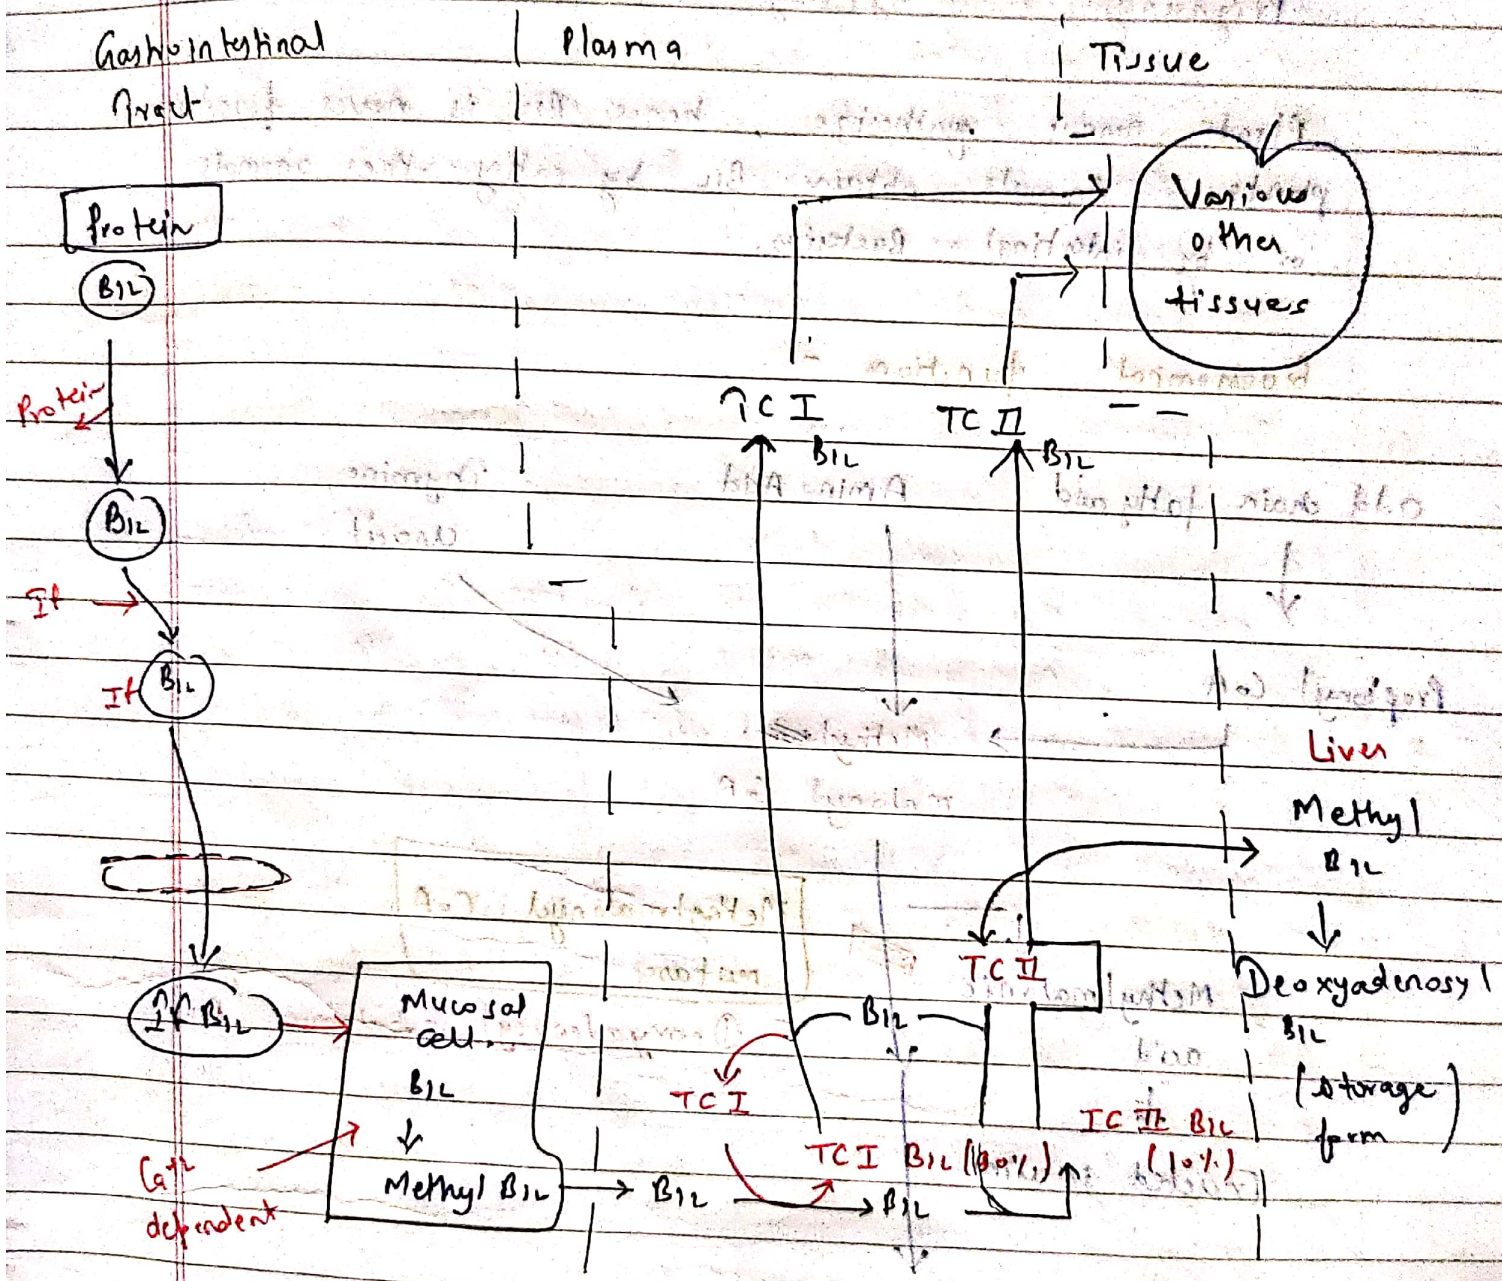 Gastrointestinal
Tract
Plasma
Tissue
Protein
B12
Protein
B12
If
If B12
If B12
Mucosal
cell.
B12
Methyl B12
Ca+2
dependent
B12
B12
TC I
TC I B12 (90%)
TC II B12
(10%)
B12
TC II
TC I
B12
TC II
B12
Various
other
tissues
Liver
Methyl
B12
Deoxyadenosyl
B12
(storage
form)